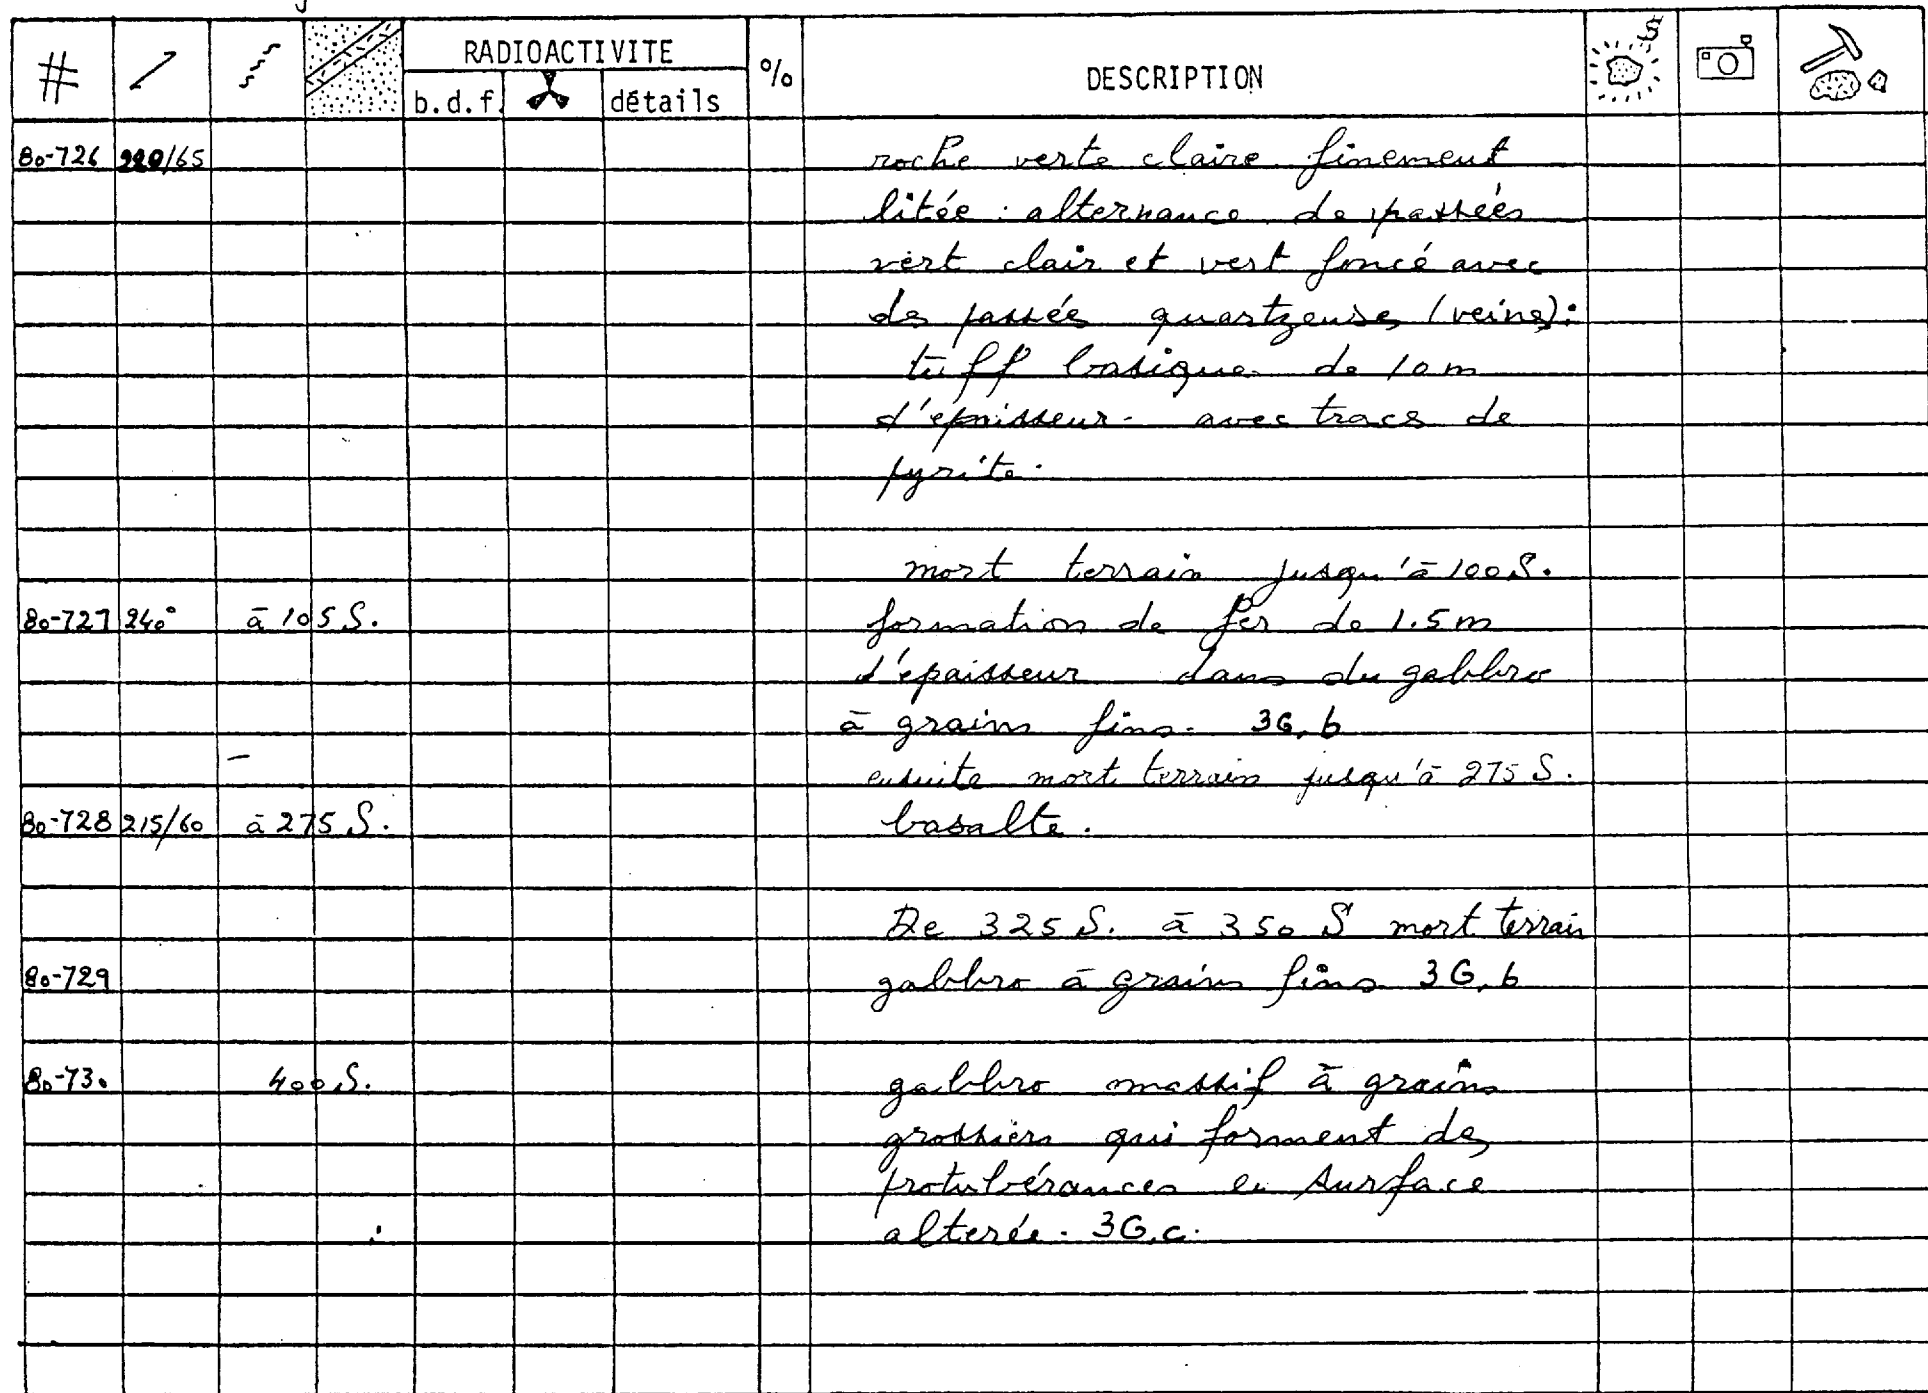 # RADIOACTIVITE % DESCRIPTION S
b.d.f. détails
80-726 220/65 roche verte claire finement
litée : alternance de passées
vert clair et vert foncé avec
des passés quartzeuses (veines):
tuff basique de 10 m
d'épaisseur - avec traces de
pyrite.
mort terrain jusqu'à 100 S.
80-727 240° à 105 S. formation de fer de 1.5 m
d'épaisseur dans du gabbro
à grains fins. 3G, b
ensuite mort terrain jusqu'à 275 S.
80-728 215/60 à 275 S. basalte.
De 325 S. à 350 S mort terrain
80-729 gabbro à grains fins 3G, b
80-730 400 S. gabbro massif à grains
grossiers qui forment des
protubérances en surface
alterée. 3G.c.